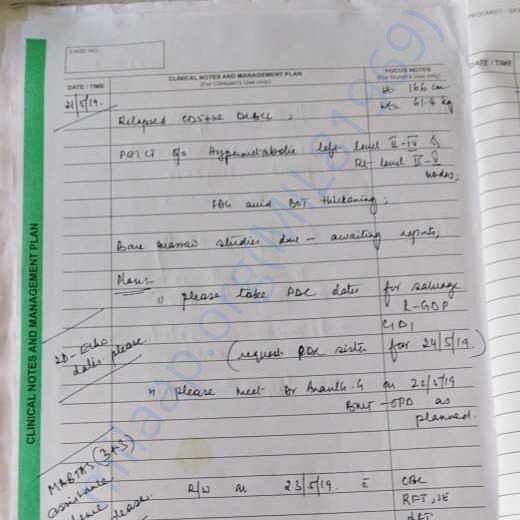 CASE NO.
CLINICAL NOTES AND MANAGEMENT PLAN
(For Clinician's Use only)
FOCUS NOTES
(For Nurse's Use only)
DATE / TIME
Ht 166 cm
21/5/19.
Wt 61.4 kg
Relapsed CD5+ve DLBCL ,
PET CT s/o Hypermetabolic left level II-IV &
Rt level II-V
nodes,
and BOT thickening,
Bone marrow studies due - awaiting reports,
Plan:-
please take PDC dates for salvage
R-GDP
C1D1
2D-Echo
dates please.
(request PDC sister for 24/5/19.)
please meet Dr Ananth.G on 22/5/19
BMT-OPD as
planned.
MABTAS (3+3)
assistance
please.
R/W on 23/5/19. c̄ CBC
RFT, SE
LFT
CLINICAL NOTES AND MANAGEMENT PLAN
DATE / TIME
milaap.org(MIL81969)